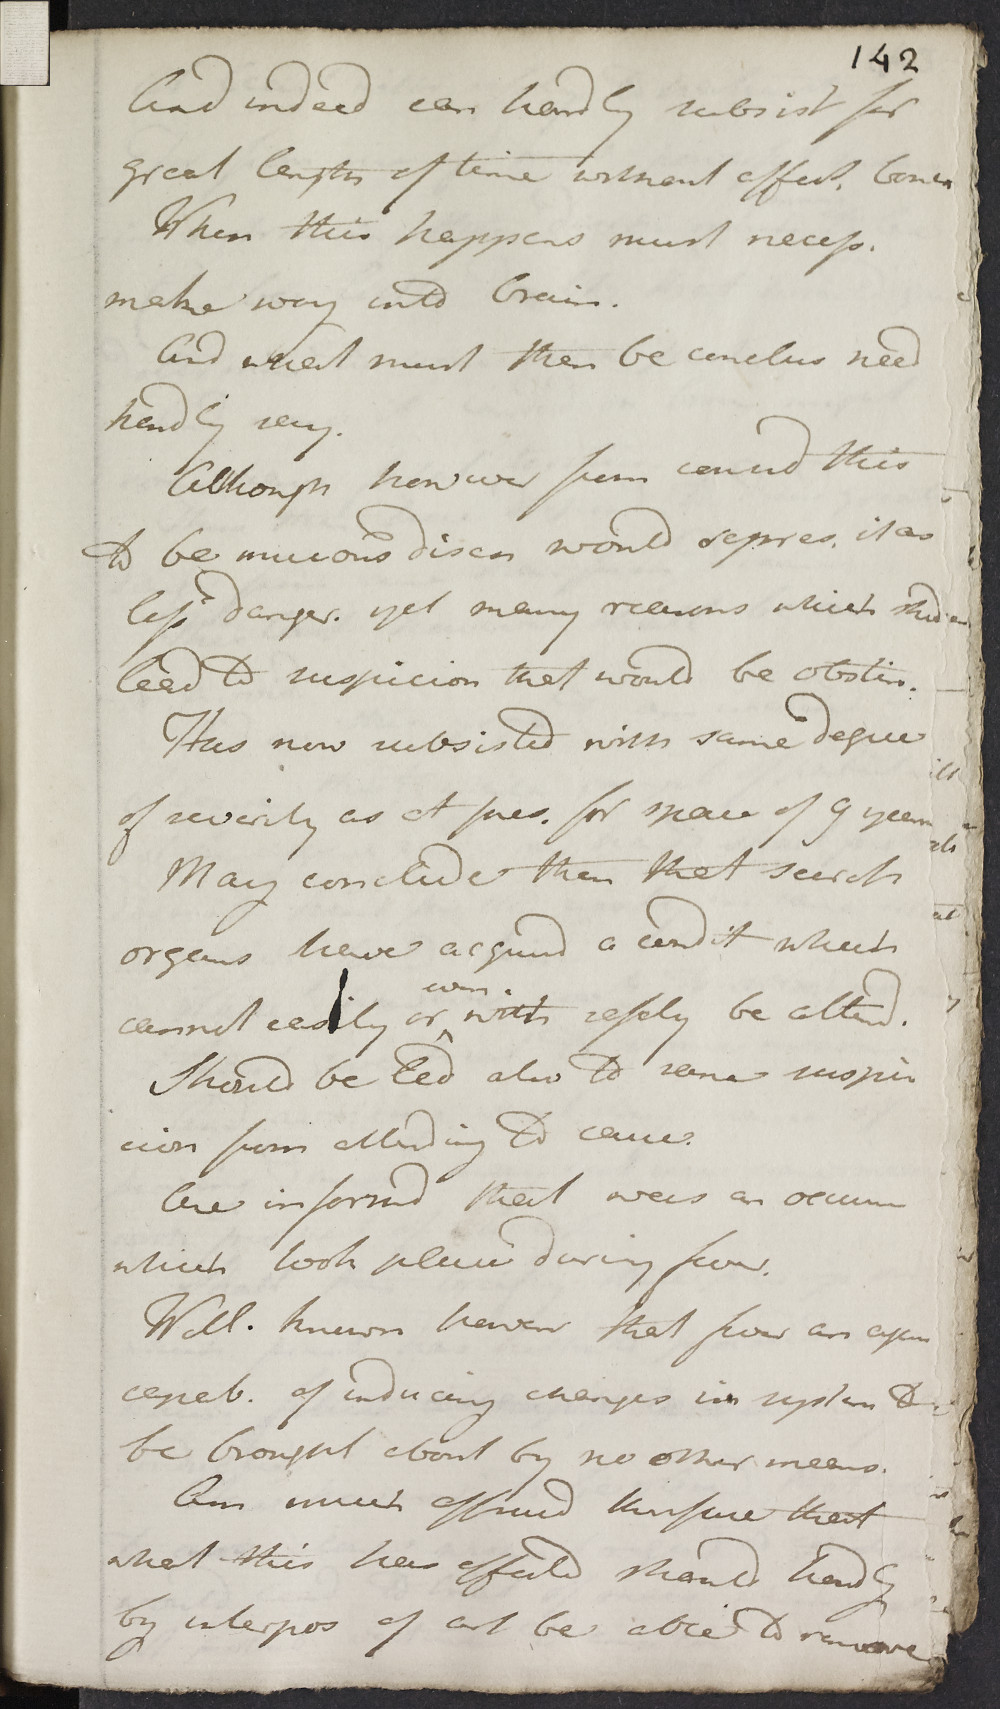 142
And indeed can hardly subsist for
great length of time without affect. bones
When this happens must necess.
make way into brain.
And what must then be conclus need
hardly say.
Although however from conceived this
to be mucous diseas would repres. it as
less danger. yet many reasons which shd
lead to suspicion that would be obstin.
Has now subsisted with same degree
of severity as at pres. for space of 9 years
May conclude then that search
organs have acquird a condit which
cannot easily or with safely be alterd.
even.
Should be led also to same suspi
cion from attending to cause.
Are informd that was an occurr
which took place during fever.
Well. known however that fever an agen
capab. of inducing changes in system to
be brought about by no other means.
Am much affraid therefore that
what this has affected should hardly
by interpos of art be able to remove